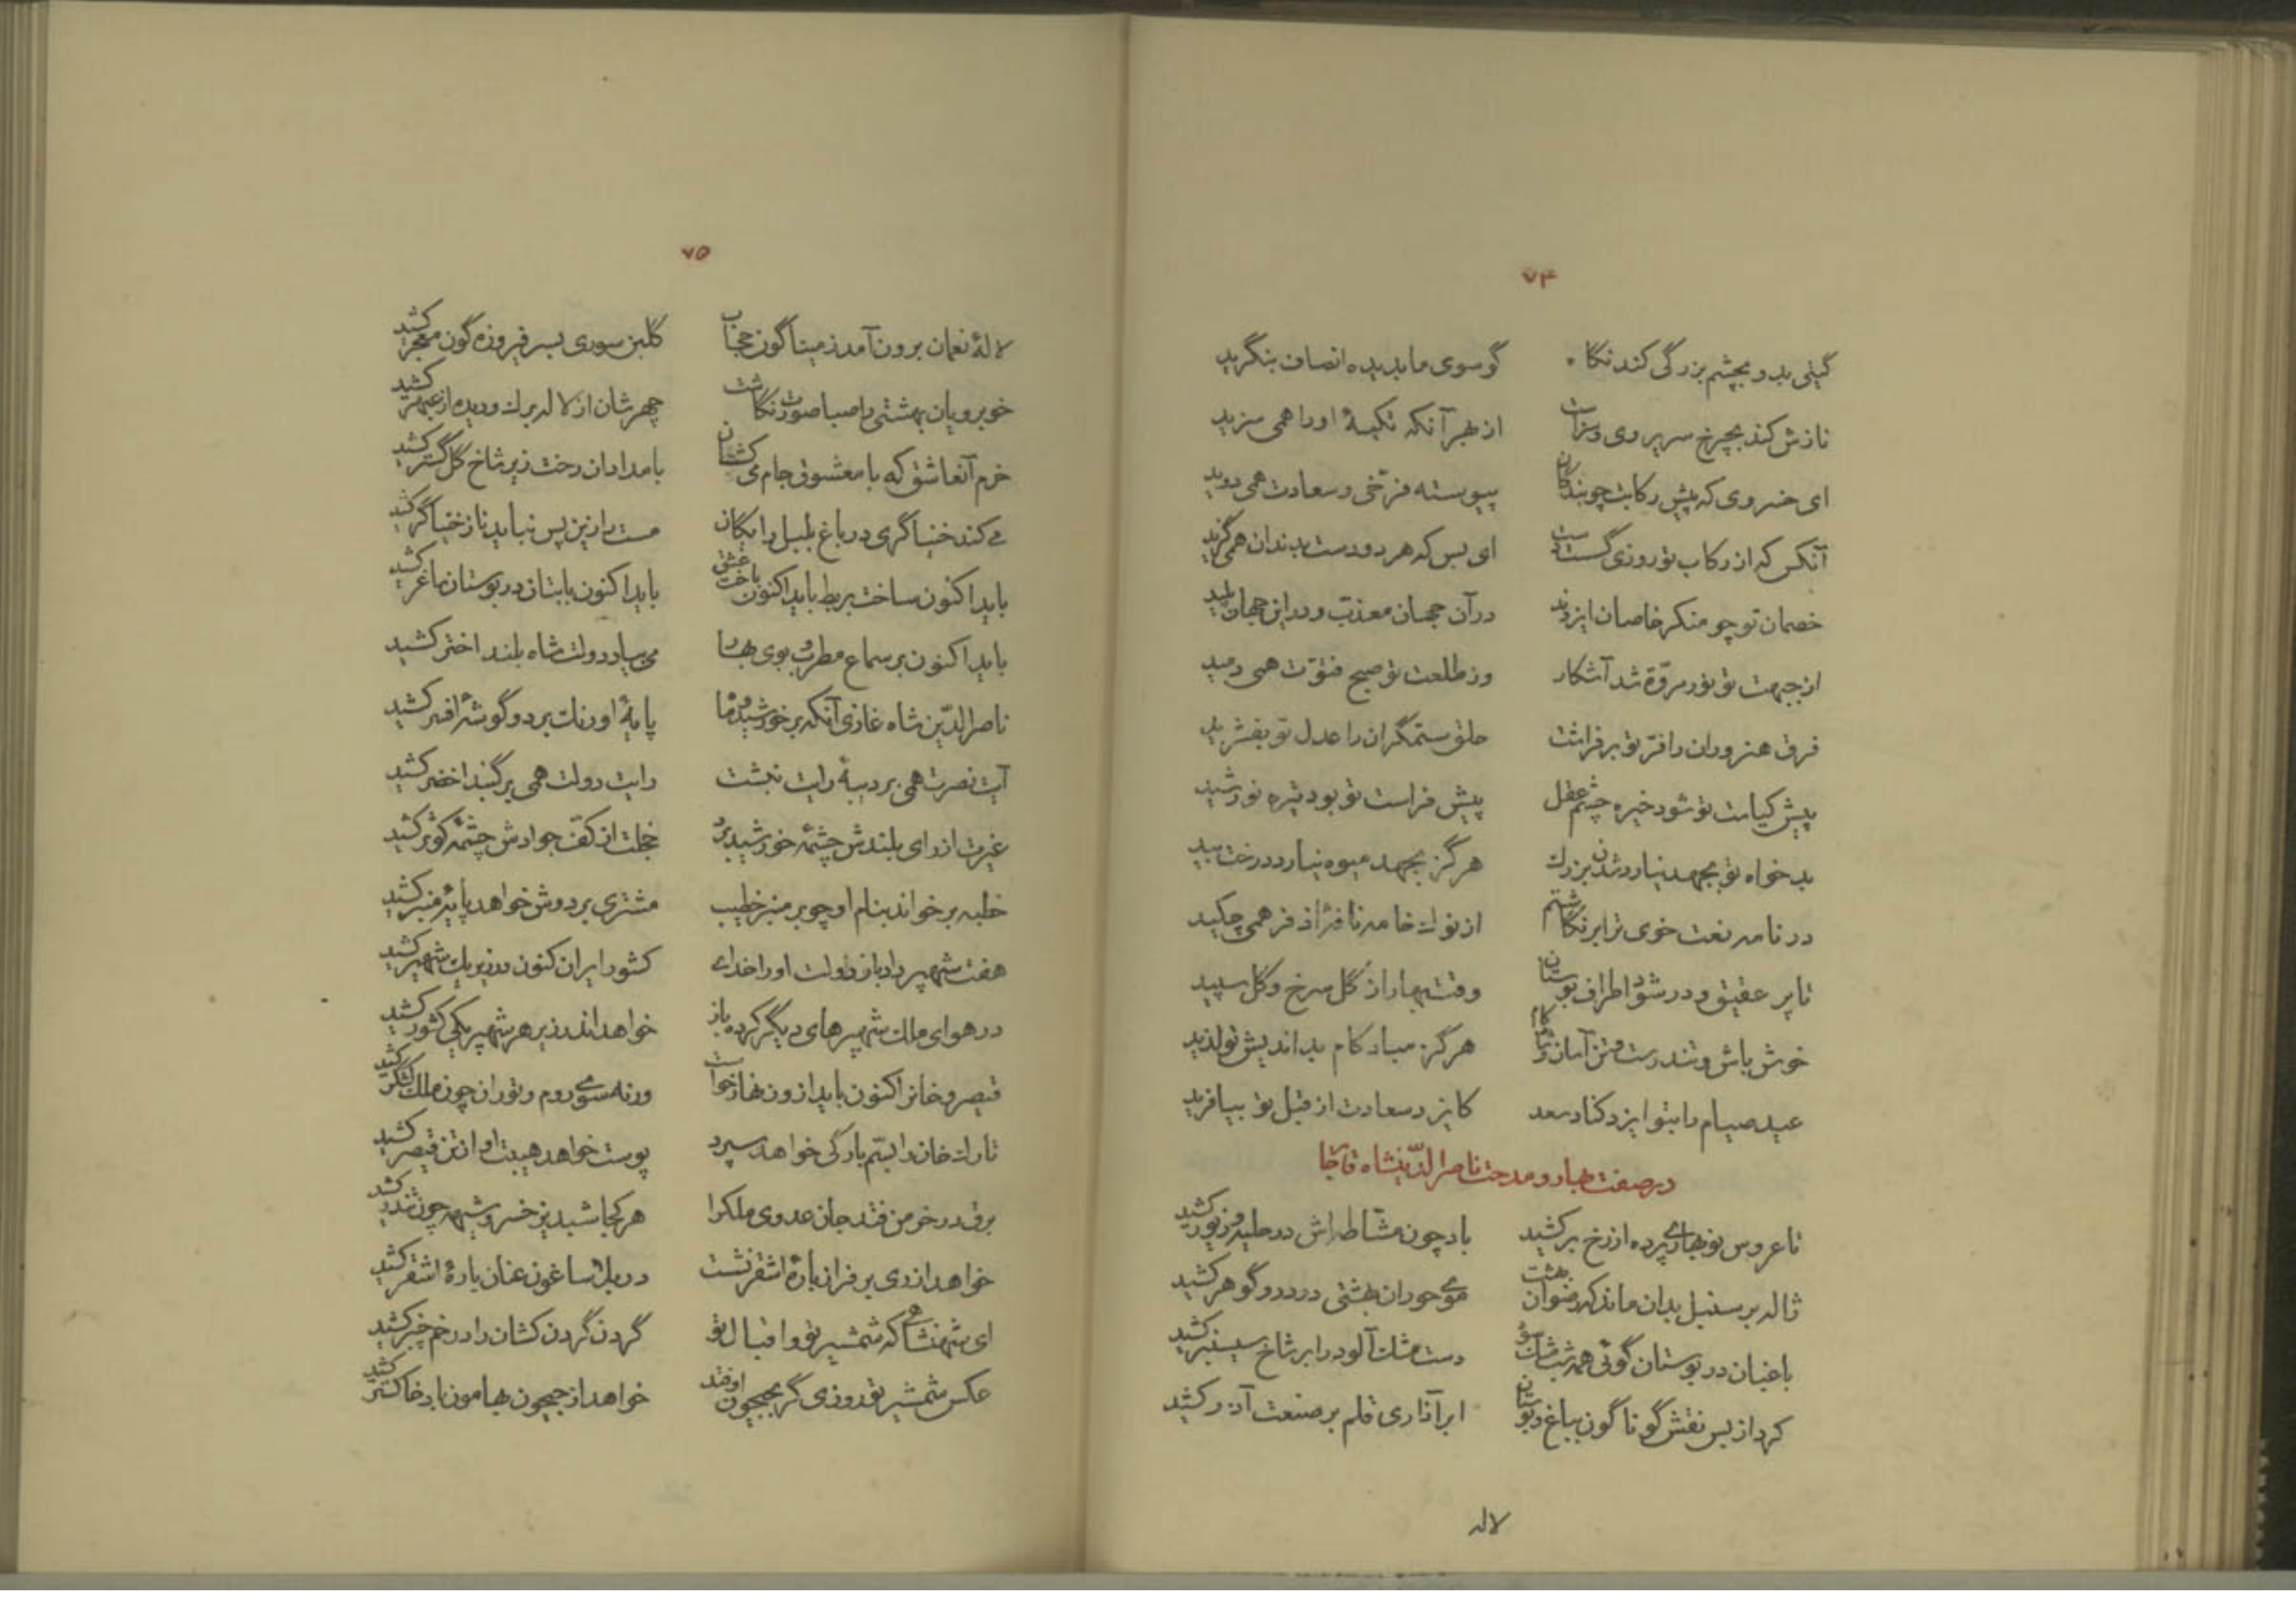 ۷۴
گیتی بدو بچشم بزرگی کند نگاه گو سوی ما بدیده انصاف بنگرید
نازش کند بچرخ سریر وی و سزاست از بهر آنکه تکیهٔ او را همی سزید
ای خسروی که پیش رکابت چو بندگان پیوسته فرّخی و سعادت همی دوید
آنکس که از رکاب تو روزی گسست دست ای بس که هر دو دست بدندان همی گزید
خصمان تو چو منکر خاصان ایزدند در آن جهان معذب و در این جهان پلید
از جبهت تو نور مروّة شد آشکار وز طلعت تو صبح فتوّت همی دمید
فرق هنروران را فرّ تو برفراشت حلق ستمگران را عدل تو بفشرید
پیش کیاست تو شود خیره چشم عقل پیش فراست تو بود تیره نور شید
بدخواه تو بجهد نیارد شدن بزرك هرگز بجهد میوه نیارد درخت بید
در نامه نعت خوی ترا بر نگاشتم از نوك خامه نافهٔ اذفر همی چکید
تا پر عقیق و در شود اطراف بوستان وقت بهار از گل سرخ و گل سپید
خوش باش و تندرست و تن آسان و شادکام هرگز مباد کام بداندیش تو لذید
عید صیام را بتو ایزد کناد سعد کایزد سعادت از قبل تو بیافرید
در صفت بهار و مدحت ناصرالدّینشاه قاجار
تا عروس نوبهاری پرده از رخ برکشید باد چون مشّاطه اش در حلیه و زیور کشید
ژاله بر سنبل بدان ماند که رضوان بهشت موی حوران بهشتی در در و گوهر کشید
باغبان در بوستان گوئی همه شب مشك سود دست مشك آلود را بر شاخ سیسنبر کشید
کرد از بس نقش گوناگون بباغ و بوستان ابر آذاری قلم بر صنعت آذر کشید
لاله
۷۵
لالهٔ نعمان برون آمد ز میناگون حجاب گلبن سوری بسر فیروزه گون معجر کشید
خوبرویان بهشتی را صبا صورت نگاشت چهرشان از لاله برك و دیده از عبهر کشید
خرم آنعاشق که با معشوق جام می کشان بامدادان رخت زیر شاخ گل گستر کشید
می کند خنیاگری در باغ بلبل رایگان مست را زین پس نباید ناز خنیاگر کشید
باید اکنون ساخت بربط باید اکنون باخت عشق باید اکنون با بتان در بوستان ساغر کشید
باید اکنون بر سماع مطرب و بوی بهار می بیاد دولت شاه بلند اختر کشید
ناصرالدّین شاه غازی آنکه بر خورشید و ماه پایهٔ اورنك برد و گوشهٔ افسر کشید
آیت نصرت همی بر دیبهٔ رایت نبشت رایت دولت همی بر گنبد اخضر کشید
غیرت از رای بلندش چشمهٔ خورشید برد خجلت از کفّ جوادش چشمهٔ کوثر کشید
خطبه برخواند بنام او چو بر منبر خطیب مشتری بر دوش خواهد پایهٔ منبر کشید
هفت شهپر داد باز دولت او را خدای کشور ایران کنون در زیر یك شهپر کشید
در هوای ملك شهپرهای دیگر کرده باز خواهد اندر زیر هر شهپر یکی کشور کشید
قیصر و خانرا کنون باید از و زنهار خواست ورنه سوی روم و توران چون ملك لشکر کشید
تارك خان را بسّم بارگی خواهد سپرد پوست خواهد هیبت او از تن قیصر کشید
برق در خرمن فتد جان عدوی ملکرا هر کجا شبدیز خسرو شیهه چون تندر کشید
خواهد از ری بر فراز بارهٔ اشقر نشست در بلاساغون عنان بارهٔ اشقر کشید
ای شهنشاهی که شمشیر تو و اقبال تو گردن گردن کشان را در خم چنبر کشید
عکس شمشیر تو روزی گر بجیحون اوفتد خواهد از جیحون بهامون باد خاکستر کشید